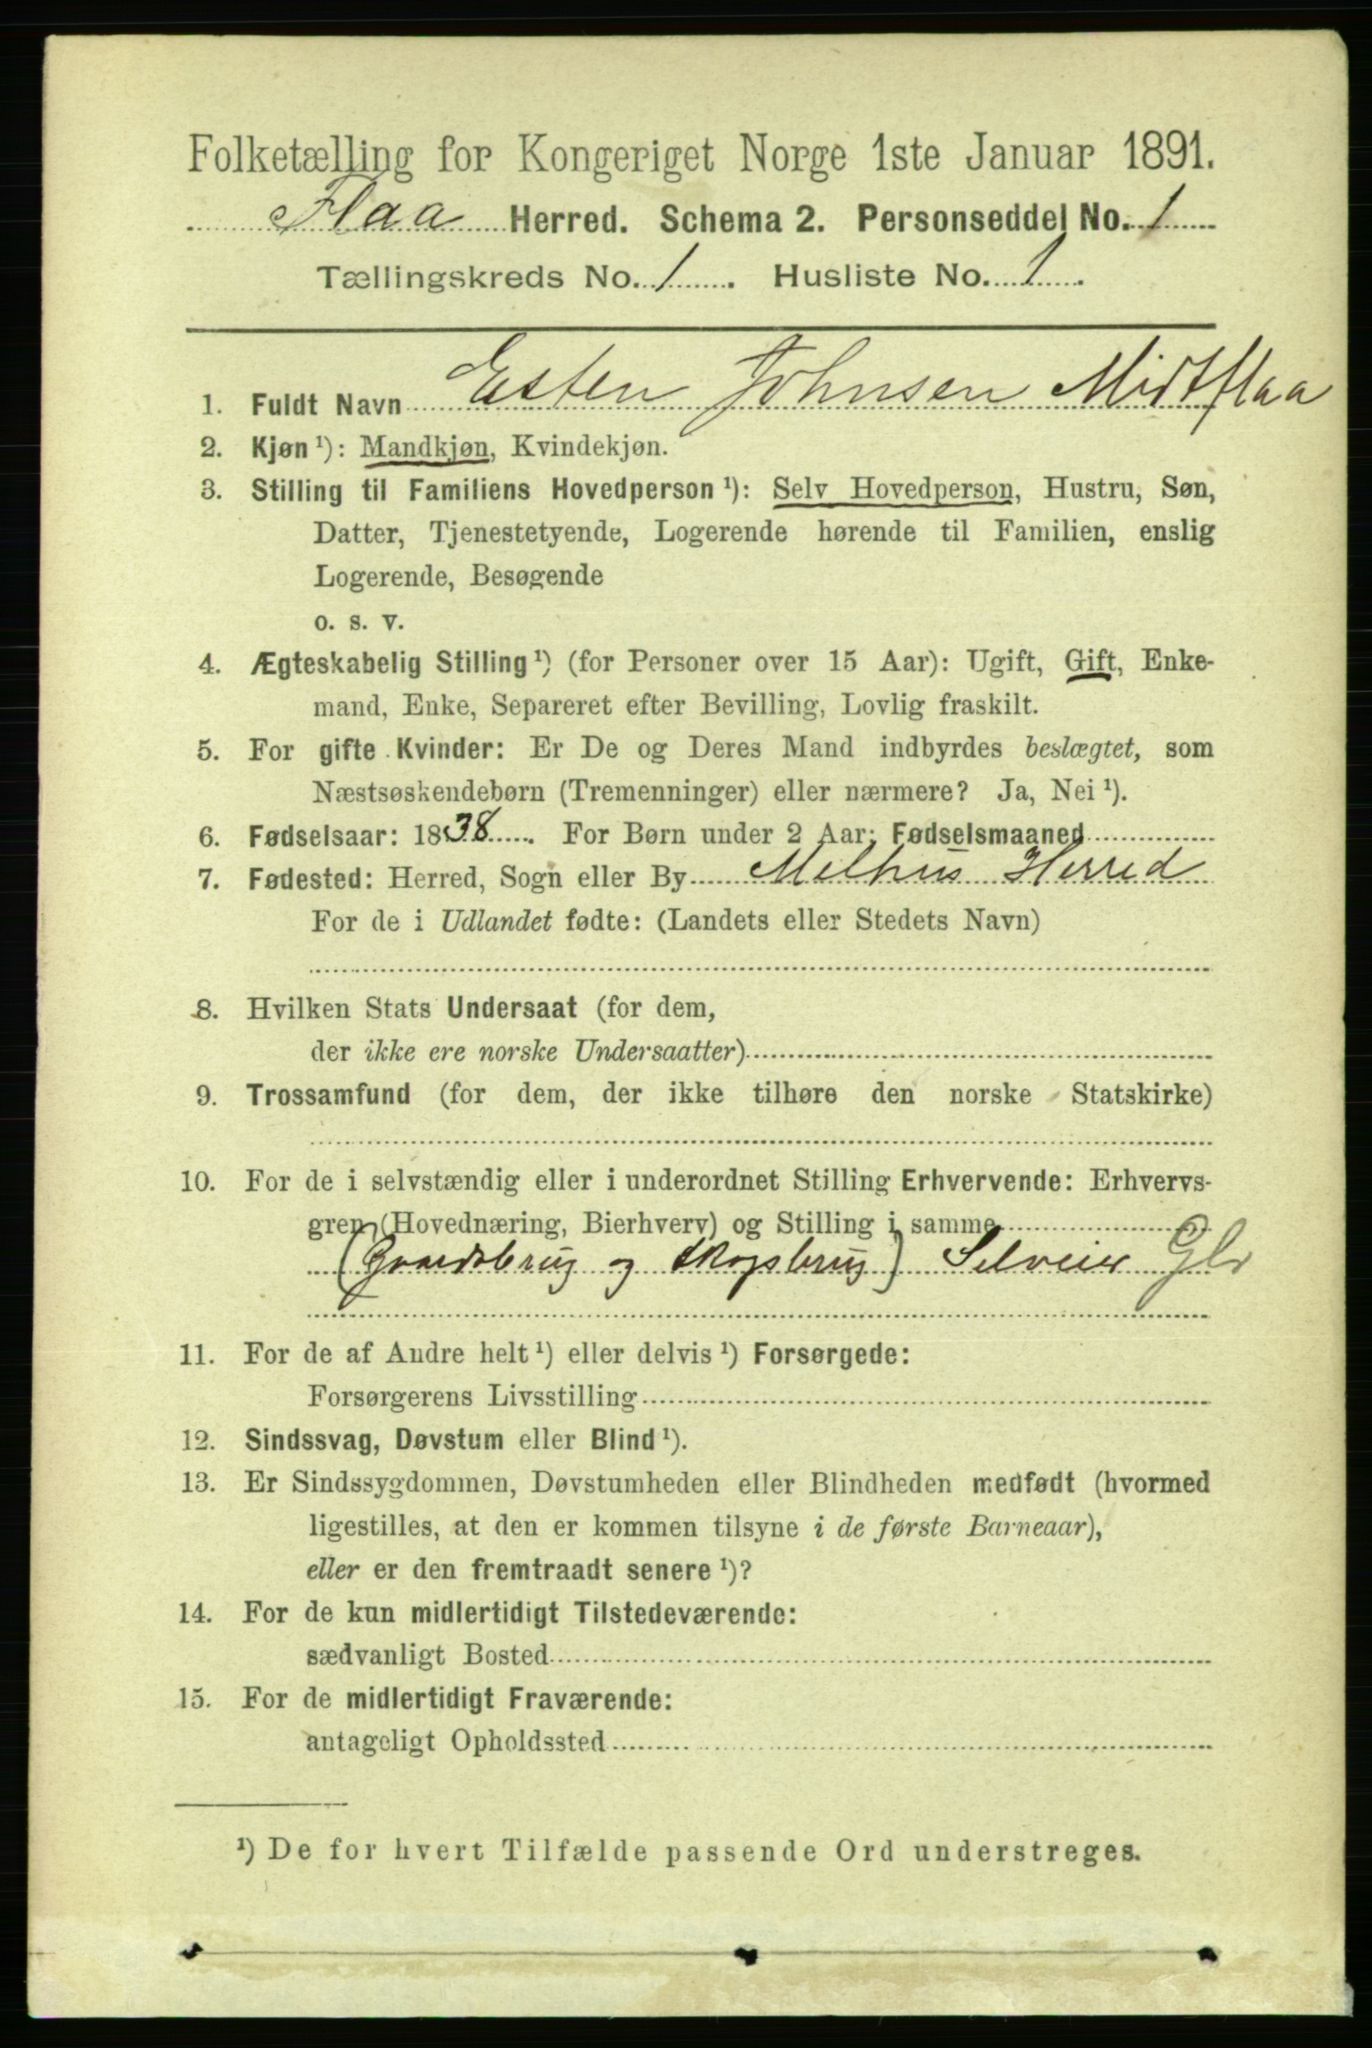 Folketælling for Kongeriget Norge 1ste Januar 1891.
Flaa Herred. Schema 2. Personseddel No. 1
Tællingskreds No. 1. Husliste No. 1.
1. Fuldt Navn Esten Johnsen Midtflaa
2. Kjøn ¹): Mandkjøn, Kvindekjøn.
3. Stilling til Familiens Hovedperson ¹): Selv Hovedperson, Hustru, Søn,
Datter, Tjenestetyende, Logerende hørende til Familien, enslig
Logerende, Besøgende
o. s. v.
4. Ægteskabelig Stilling ¹) (for Personer over 15 Aar): Ugift, Gift, Enke-
mand, Enke, Separeret efter Bevilling, Lovlig fraskilt.
5. For gifte Kvinder: Er De og Deres Mand indbyrdes beslægtet, som
Næstsøskendebørn (Tremenninger) eller nærmere? Ja, Nei ¹).
6. Fødselsaar: 1838. For Børn under 2 Aar: Fødselsmaaned
7. Fødested: Herred, Sogn eller By Melhus Herred
For de i Udlandet fødte: (Landets eller Stedets Navn)
8. Hvilken Stats Undersaat (for dem,
der ikke ere norske Undersaatter)
9. Trossamfund (for dem, der ikke tilhøre den norske Statskirke)
10. For de i selvstændig eller i underordnet Stilling Erhvervende: Erhvervs-
gren (Hovednæring, Bierhverv) og Stilling i samme
(Gaardsbrug og Skogsbrug) Selveier Gbr
11. For de af Andre helt ¹) eller delvis ¹) Forsørgede:
Forsørgerens Livsstilling
12. Sindssvag, Døvstum eller Blind ¹).
13. Er Sindssygdommen, Døvstumheden eller Blindheden medfødt (hvormed
ligestilles, at den er kommen tilsyne i de første Barneaar),
eller er den fremtraadt senere ¹)?
14. For de kun midlertidigt Tilstedeværende:
sædvanligt Bosted
15. For de midlertidigt Fraværende:
antageligt Opholdssted
¹) De for hvert Tilfælde passende Ord understreges.